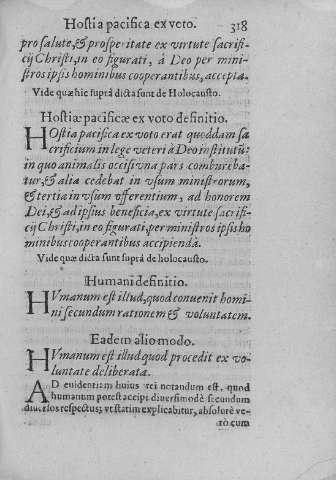 Hostia pacifica ex veto. 318
pro salute, & prosperitate ex virtute sacrifi-
cij Christi, in eo figurati, à Deo per mini
stros ipsis hominibus cooperantibus, accepta.
Vide quæ hic suprà dicta sunt de Holocausto.
Hostiæ pacificæ ex voto definitio.
HOstia pacifica ex voto erat quoddam sa
crificium in lege veteri à Deo institutũ
in quo animalis occisi vna pars combureba-
tur, & alia cedebat in vsum ministrorum,
& tertia in vsum offerentium, ad honorem
Dei, & ad ipsius beneficia, ex virtute sacrifi-
cij Christi, in eo figurati, per ministros ipsis ho
minibus cooperantibus accipienda.
Vide quæ dicta sunt suprà de holocausto.
Humani definitio.
HVmanum est illud, quod conuenit homi-
ni secundum rationem & voluntatem.
Eadem alio modo.
HVmanum est illud quod procedit ex vo-
luntate deliberata.
AD euidentiam huius rei notandum est, quod
humanum potest accipi diuersimodè secundum
diuersos respectus; vt statim explicabitur, absolutè ve-
rò cum